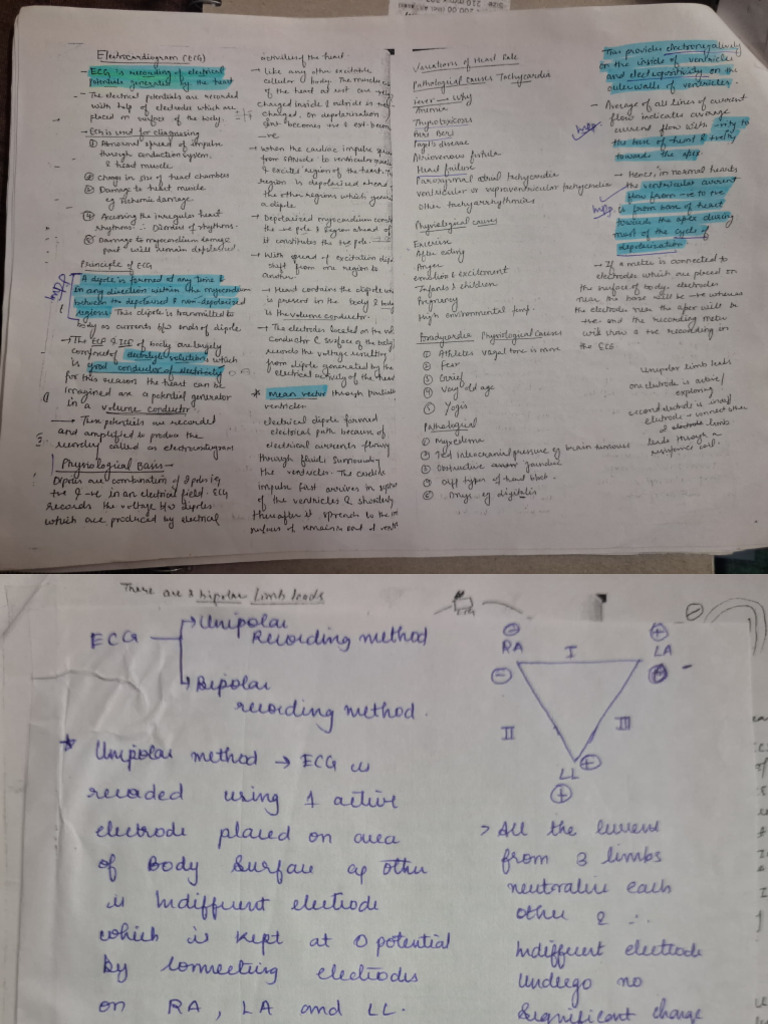 Electrocardiogram (ECG)
- ECG is recording of electrical
potentials generated by the heart
- The electrical potentials are recorded
with help of electrodes which are
placed on surface of the body.
- ECG is used for diagnosing
① Abnormal spread of impulse
through conduction system
& heart muscle.
② Change in size of heart chambers
③ Damage to heart muscle
eg ischemic damage
④ Assessing the irregular heart
rhythms ∴ Disorders of rhythms.
⑤ Damage to myocardium damage
part will remain depolarised.
Principle of ECG
A dipole is formed at any time &
in any direction within the myocardium
between the depolarised & non-depolarised
regions. This dipole is transmitted to
body as currents b/w ends of dipole
- The ECF & ICF of body are largely
composed of electrolyte solutions which
is good conductor of electricity
for this reason the heart can be
imagined as a potential generator
in a volume conductor.
→ These potentials are recorded
and amplified to produce the
recording called as electrocardiogram
Physiological Basis -
Dipoles are combination of 2 poles ie
+ve & -ve in an electrical field. ECG
records the voltage b/w dipoles
which are produced by electrical
activities of the heart
→ Like any other excitable
cells of body. The muscle
of the heart at rest are
charged inside & outside is
charged. On depolarisation
becomes +ve & ext become
-ve
→ When the cardiac impulse
from SA node to ventricular
& excites region of the heart. The
region is depolarised ahead
the other regions which
a dipole.
→ Depolarised myocardium
the -ve pole & region ahead of
it constitutes the +ve pole.
→ With spread of excitation dipole
shift from one region to
another
→ Heart contains the dipole
is present in the body &
is the volume conductor.
→ The electrodes located on the
conductor & surface of the body
records the voltage resulting
from dipole generated by the
electrical activity of the heart
* Mean vector through partial
ventricles
electrical dipole formed
electrical path because of
electrical currents flowing
through fluids surrounding
the ventricles. The cardiac
impulse first arrives in
of the ventricles & shortly
thereafter it spreads to the
Variations of Heart Rate
Pathological Causes Tachycardia
Fever → Why
Anemia
Thyrotoxicosis
Beri Beri
Paget's disease
Arteriovenous fistula
Heart failure
Paroxysmal atrial tachycardia
ventricular or supraventricular tachycardia
other tachyarrhythmias
Physiological causes
Exercise
After eating
Anger
emotion & excitement
Infants & children
Pregnancy
High environmental temp.
Bradycardia Physiological Causes
① Athletes vagal tone is more
② Fear
③ Grief
④ Very old age
⑤ Yogis
Pathological
① Myxedema
② Ted intracranial pressure eg brain tumours
③ Obstructive jaundice
④ Diff types of heart block
⑤ Drugs eg digitalis
This provides electronegativity
on the inside of ventricles
and electropositivity on the
outer walls of ventricles.
- Average of all lines of current
flow indicates average
current flow with -vity to
the base of heart & +vity
towards the apex
imp
→ hence, in normal hearts
the ventricular current
flow from -ve to +ve
is from base of heart
toward the apex during
most of the cycle of
depolarisation
imp
→ If a meter is connected to
electrodes which are placed on
the surface of body. electrodes
near the base will be -ve whereas
the electrode near the apex will be
+ve and the recording meter
will show a +ve recording on
the ECG.
Unipolar limb leads
one electrode is active/
exploring
second electrode is indiff
electrode → connect other
2 electrode limbs
leads through a
resistance coil.
There are 3 bipolar limb leads
ECG → Unipolar
Recording method
→ Bipolar
recording method.
* Unipolar method → ECG is
recorded using 1 active
electrode placed on area
of Body Surface as other
is Indifferent electrode
which is kept at 0 potential
by connecting electrodes
on RA, LA and LL.
⊖ RA I ⊕ LA
⊖ ⊕ -
II III
LL ⊕
⊕
> All the current
from 3 limbs
neutralise each
other & ∴
Indifferent electrode
undergo no
significant change